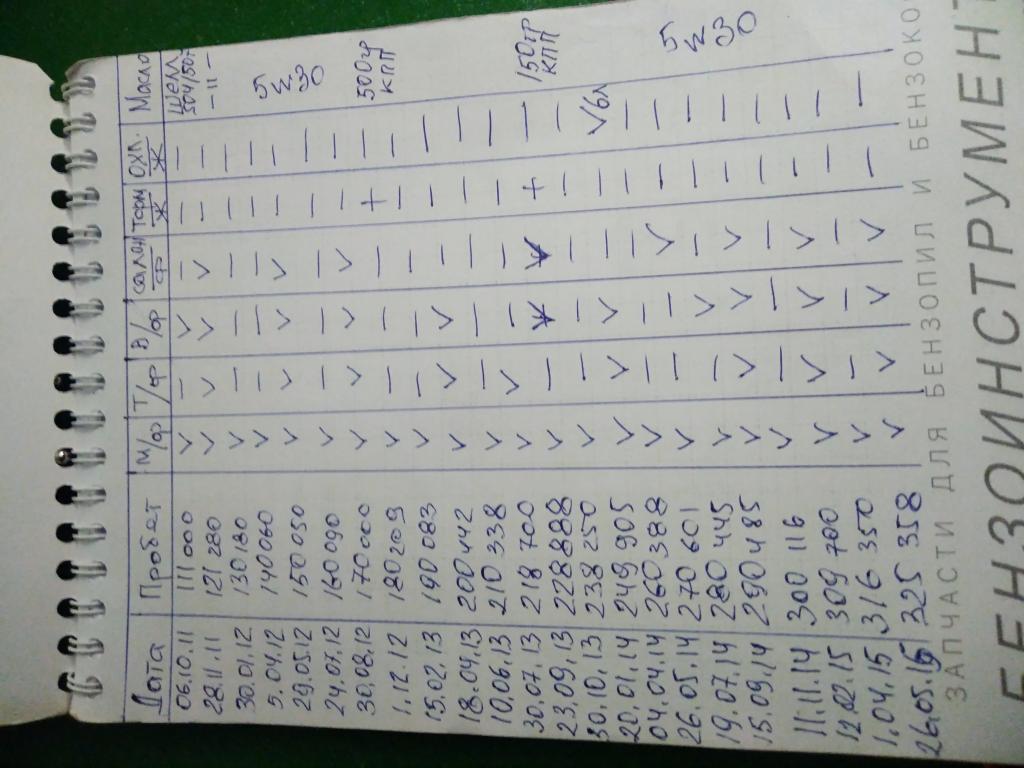 Дата Пробег М/ф Т/ф В/ф салон ф торм ж охл. ж Масло
06.10.11 111000 V — V — — — Шелл 504/507
28.11.11 121280 V V V V — — —11—
30.01.12 130180 V — — — — —
5.04.12 140060 V — — — — —
29.05.12 150050 V V V V — — 5w30
24.07.12 160090 V — — — — —
30.08.12 170000 V V V V + — 500гр КПП
1.12.12 180209 V — — — — —
15.02.13 190083 V — — — — —
18.04.13 200442 V V V — — —
10.06.13 210338 V — — — — —
30.07.13 218700 V V — — — —
23.09.13 228888 V — V V + — 150гр КПП
30.10.13 238250 V — — — — V 6л
20.01.14 249905 V V V — — —
04.04.14 260388 V — — — — —
26.05.14 270601 V — — V — — 5w30
19.07.14 280445 V — V — — —
15.09.14 290485 V V V V — —
11.11.14 300116 V — — — — —
12.02.15 309700 V V V V — —
1.04.15 316350 V — — — — —
26.05.15 325358 V V V V — —
ЗАПЧАСТИ ДЛЯ БЕНЗОПИЛ И БЕНЗОКО
БЕНЗОИНСТРУМЕНТ